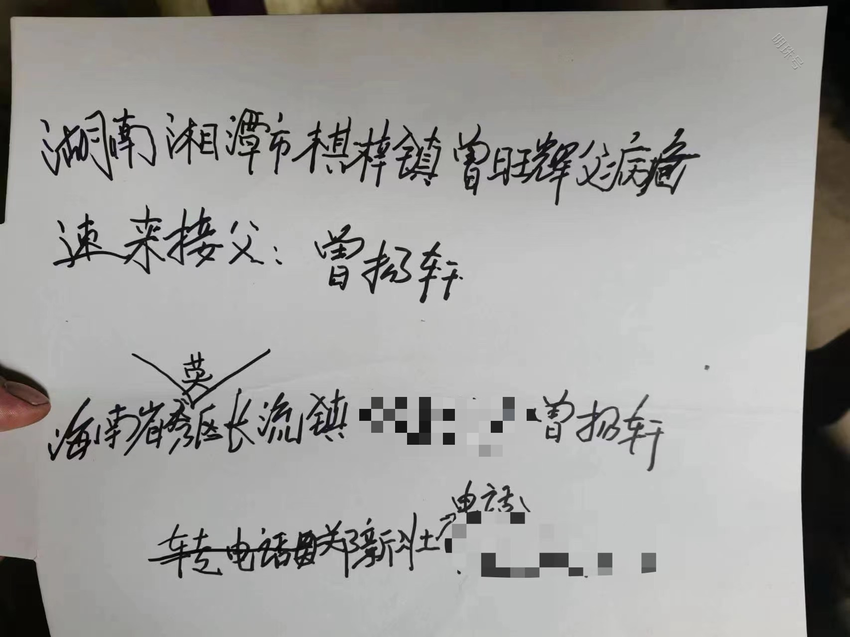 明珠号
湖南湘潭市棋梓镇曾旺辉父病危
速来接父:曾扬轩
英
海南省秀区长流镇 曾扬轩
电话
转电话 郑新